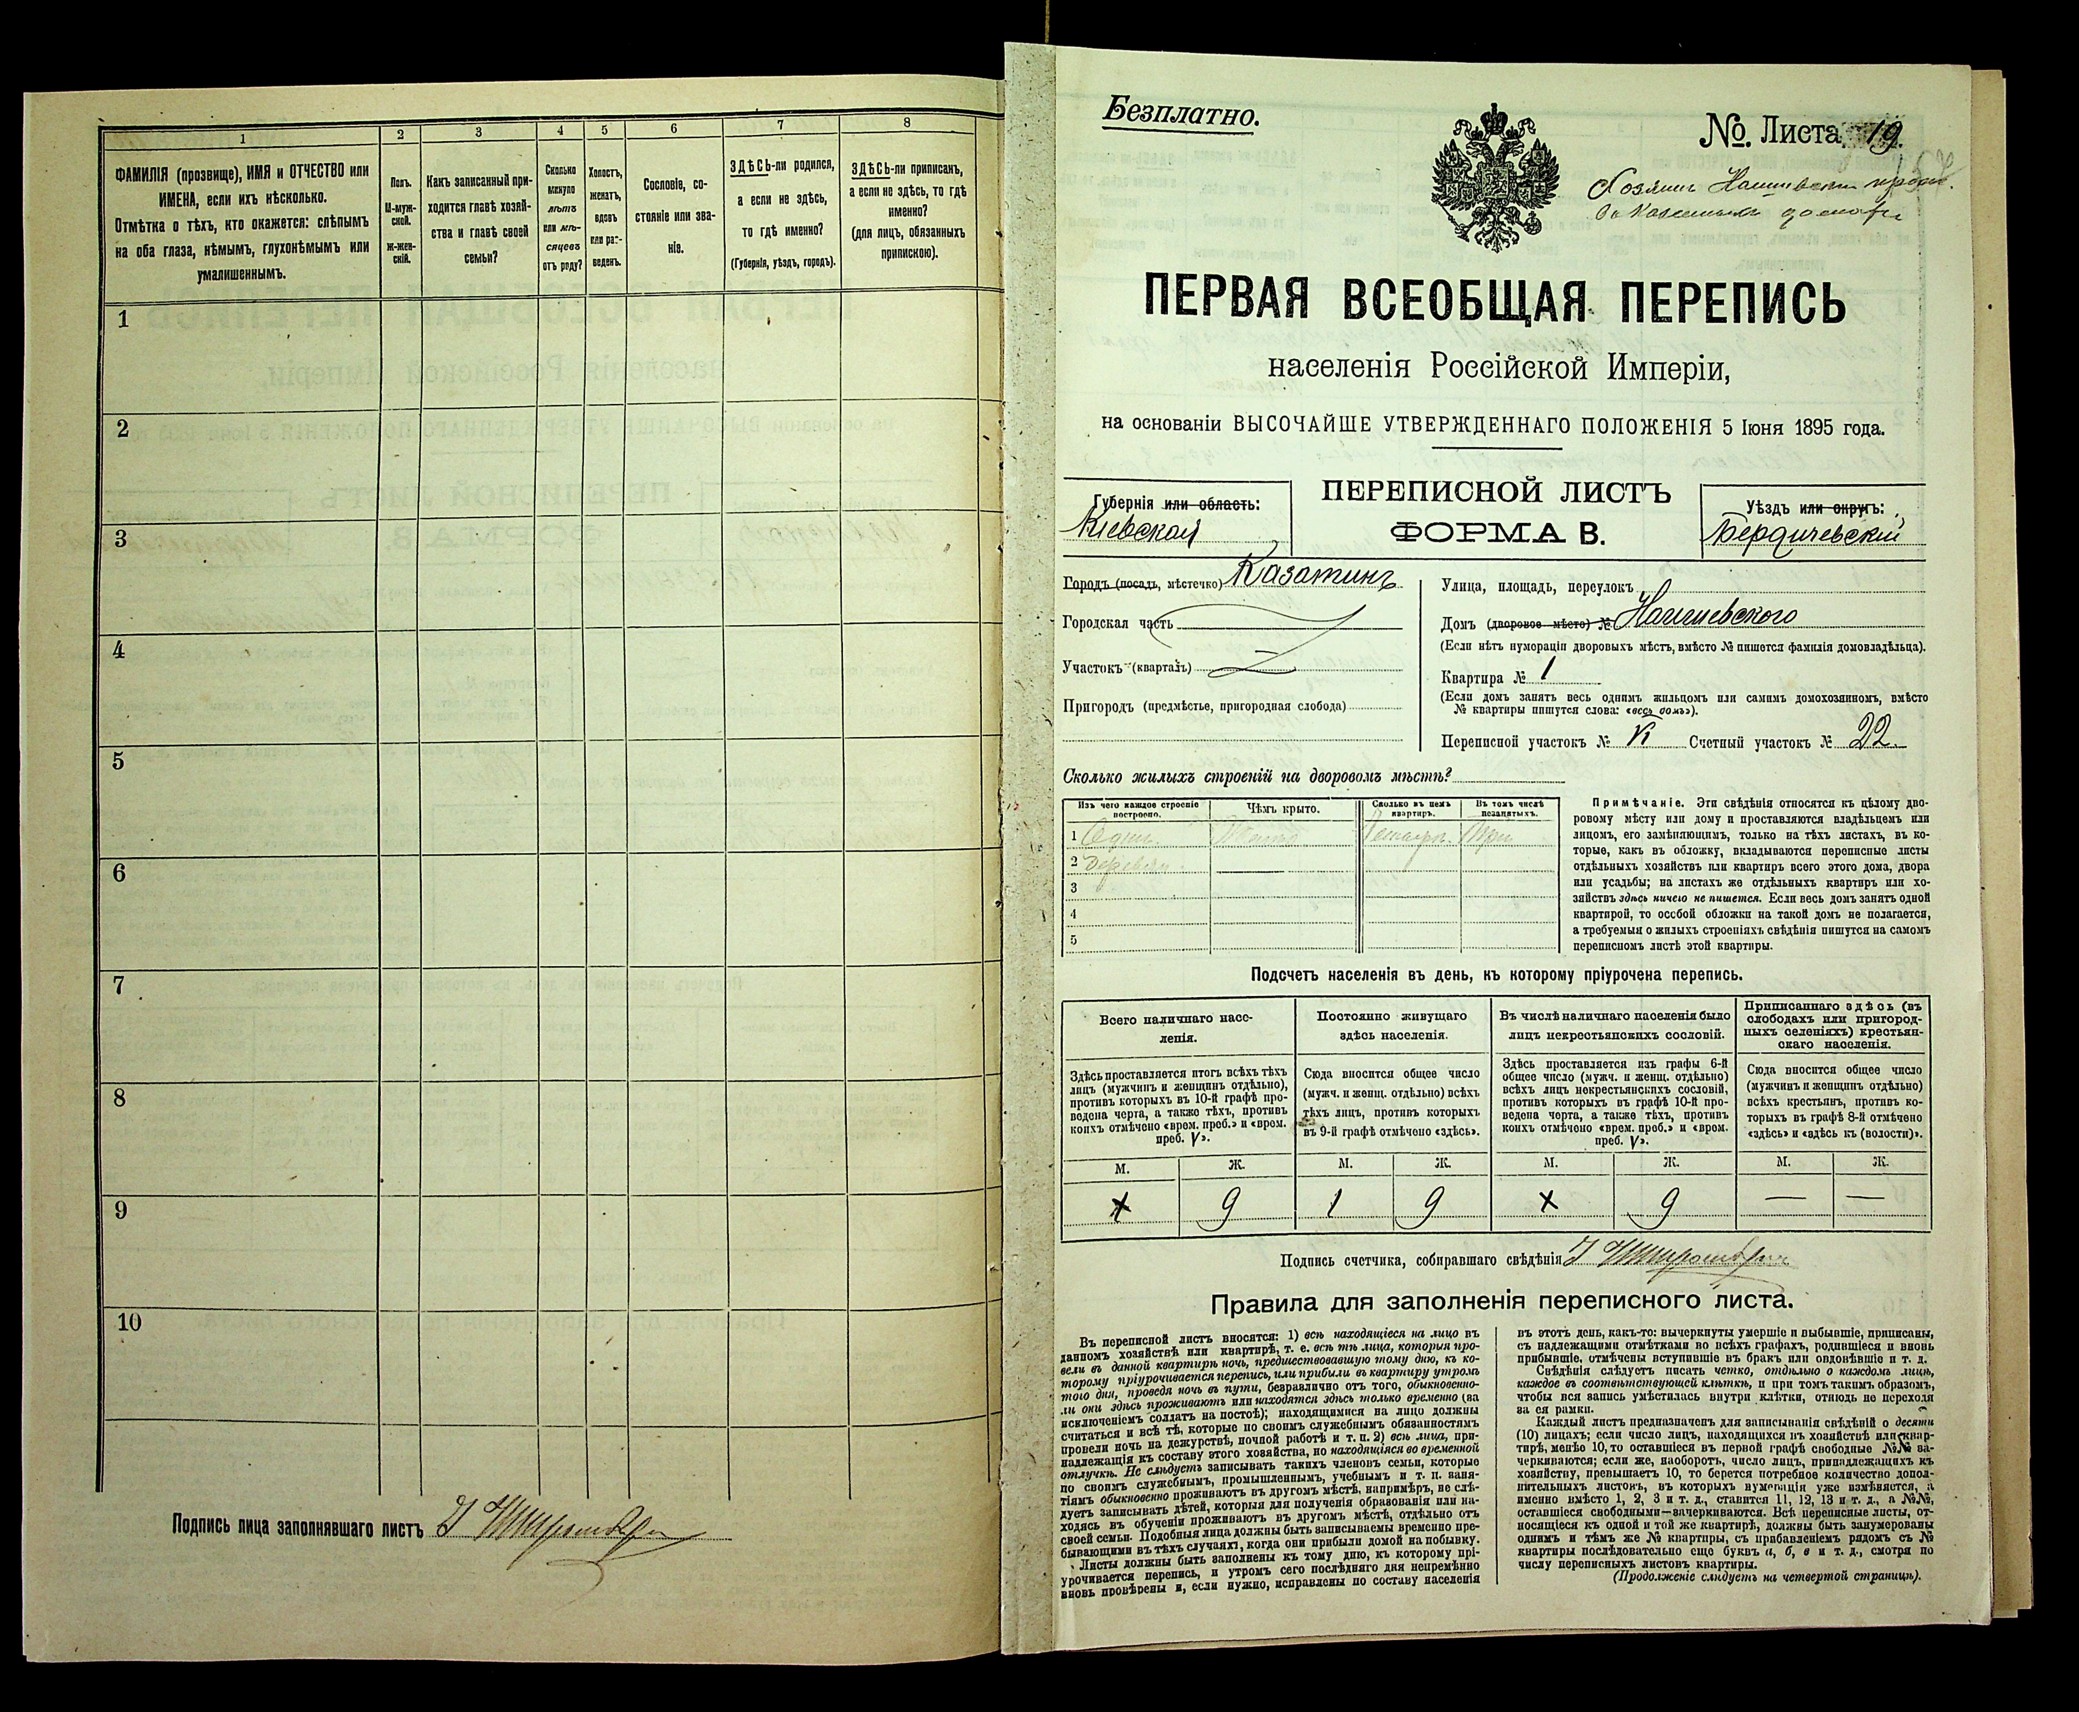 1 2 3 4 5 6 7 8
ФАМИЛІЯ (прозвище), ИМЯ и ОТЧЕСТВО или
ИМЕНА, если ихъ нѣсколько.
Отмѣтка о тѣхъ, кто окажется: слѣпымъ
на оба глаза, нѣмымъ, глухонѣмымъ или
умалишеннымъ.
Полъ.
М-муж-
ской.
ж-жен-
скій.
Какъ записанный при-
ходится главѣ хозяй-
ства и главѣ своей
семьи?
Сколько
минуло
лѣтъ
или мѣ-
сяцевъ
отъ роду?
Холостъ,
женатъ,
вдовъ
или раз-
веденъ.
Сословіе, со-
стояніе или зва-
ніе.
ЗДѢСЬ-ли родился,
а если не здѣсь,
то гдѣ именно?
(Губернія, уѣздъ, городъ).
ЗДѢСЬ-ли приписанъ,
а если не здѣсь, то гдѣ
именно?
(для лицъ, обязанныхъ
припискою).
1
2
3
4
5
6
7
8
9
10
Подпись лица заполнявшаго листъ
Безплатно.
№. Листа 19.
Хозяинъ
ПЕРВАЯ ВСЕОБЩАЯ ПЕРЕПИСЬ
населенія Россійской Имперіи,
на основаніи ВЫСОЧАЙШЕ УТВЕРЖДЕННАГО ПОЛОЖЕНІЯ 5 Іюня 1895 года.
ПЕРЕПИСНОЙ ЛИСТЪ
ФОРМА В.
Губернія или область:
Кіевской
Уѣздъ или округъ:
Бердичевскій
Городъ (посадъ, мѣстечко) Казатинъ
Городская часть
Участокъ (кварталъ)
Пригородъ (предмѣстье, пригородная слобода)
Улица, площадь, переулокъ
Домъ (дворовое мѣсто) №
(Если нѣтъ нумораціи дворовыхъ мѣстъ, вмѣсто № пишется фамилія домовладѣльца).
Квартира № 1
(Если домъ занятъ весь однимъ жильцомъ или самимъ домохозяиномъ, вмѣсто
№ квартиры пишутся слова: «весь домъ»).
Переписной участокъ № Счетный участокъ № 22.
Сколько жилыхъ строеній на дворовомъ мѣстѣ?
Изъ чего каждое строеніе
построено.
Чѣмъ крыто.
Сколько въ немъ
квартиръ.
Въ томъ числѣ
незанятыхъ.
1
2
3
4
5
Примѣчаніе. Эти свѣдѣнія относятся къ цѣлому дво-
ровому мѣсту или дому и проставляются владѣльцемъ или
лицомъ, его замѣняющимъ, только на тѣхъ листахъ, въ ко-
торые, какъ въ обложку, вкладываются переписные листы
отдѣльныхъ хозяйствъ или квартиръ всего этого дома, двора
или усадьбы; на листахъ же отдѣльныхъ квартиръ или хо-
зяйствъ здѣсь ничего не пишется. Если весь домъ занятъ одной
квартирой, то особой обложки на такой домъ не полагается,
а требуемыя о жилыхъ строеніяхъ свѣдѣнія пишутся на самомъ
переписномъ листѣ этой квартиры.
Подсчетъ населенія въ день, къ которому пріурочена перепись.
Всего наличнаго насе-
ленія.
Здѣсь проставляется итогъ всѣхъ тѣхъ
лицъ (мужчинъ и женщинъ отдѣльно),
противъ которыхъ въ 10-й графѣ про-
ведена черта, а также тѣхъ, противъ
коихъ отмѣчено «врем. преб.» и «врем.
преб. V».
Постоянно живущаго
здѣсь населенія.
Сюда вносится общее число
(мужч. и женщ. отдѣльно) всѣхъ
тѣхъ лицъ, противъ которыхъ
въ 9-й графѣ отмѣчено «здѣсь».
Въ числѣ наличнаго населенія было
лицъ некрестьянскихъ сословій.
Здѣсь проставляется изъ графы 6-й
общее число (мужч. и женщ. отдѣльно)
всѣхъ лицъ некрестьянскихъ сословій,
противъ которыхъ въ графѣ 10-й про-
ведена черта, а также тѣхъ, противъ
коихъ отмѣчено «врем. преб.» и «врем.
преб. V».
Приписаннаго здѣсь (въ
слободахъ или пригород-
ныхъ селеніяхъ) крестьян-
скаго населенія.
Сюда вносится общее число
(мужчинъ и женщинъ отдѣльно)
всѣхъ крестьянъ, противъ ко-
торыхъ въ графѣ 8-й отмѣчено
«здѣсь» и «здѣсь къ (волости)».
М. Ж. М. Ж. М. Ж. М. Ж.
× 9 1 9 × 9 — —
Подпись счетчика, собиравшаго свѣдѣнія
Правила для заполненія переписного листа.
Въ переписной листъ вносятся: 1) всѣ находящіеся на лицо въ
данномъ хозяйствѣ или квартирѣ, т. е. всѣ тѣ лица, которыя про-
вели въ данной квартирѣ ночь, предшествовавшую тому дню, къ ко-
торому пріурочивается перепись, или прибыли въ квартиру утромъ
того дня, проведя ночь въ пути, безразлично отъ того, обыкновенно-
ли они здѣсь проживаютъ или находятся здѣсь только временно (за
исключеніемъ солдатъ на постоѣ); находящимися на лицо должны
считаться и всѣ тѣ, которые по своимъ служебнымъ обязанностямъ
провели ночь на дежурствѣ, ночной работѣ и т. п. 2) всѣ лица, при-
надлежащія къ составу этого хозяйства, но находящіяся во временной
отлучкѣ. Не слѣдуетъ записывать такихъ членовъ семьи, которые
по своимъ служебнымъ, промышленнымъ, учебнымъ и т. п. заня-
тіямъ обыкновенно проживаютъ въ другомъ мѣстѣ, напримѣръ, не слѣ-
дуетъ записывать дѣтей, которыя для полученія образованія или на-
ходясь въ обученіи проживаютъ въ другомъ мѣстѣ, отдѣльно отъ
своей семьи. Подобныя лица должны быть записываемы временно пре-
бывающими въ тѣхъ случаяхъ, когда они прибыли домой на побывку.
Листы должны быть заполнены къ тому дню, къ которому прі-
урочивается перепись, и утромъ сего послѣдняго дня непремѣнно
вновь провѣрены и, если нужно, исправлены по составу населенія
въ этотъ день, какъ-то: вычеркнуты умершіе и выбывшіе, приписаны,
съ надлежащими отмѣтками во всѣхъ графахъ, родившіеся и вновь
прибывшіе, отмѣчены вступившіе въ бракъ или овдовѣвшіе и т. д.
Свѣдѣнія слѣдуетъ писать четко, отдѣльно о каждомъ лицѣ,
каждое въ соотвѣтствующей клѣткѣ, и при томъ такимъ образомъ,
чтобы вся запись умѣстилась внутри клѣтки, отнюдь не переходя
за ея рамки.
Каждый листъ предназначенъ для записыванія свѣдѣній о десяти
(10) лицахъ; если число лицъ, находящихся въ хозяйствѣ или квар-
тирѣ, менѣе 10, то оставшіеся въ первой графѣ свободные №№ за-
черкиваются; если же, наоборотъ, число лицъ, принадлежащихъ къ
хозяйству, превышаетъ 10, то берется потребное количество допол-
нительныхъ листовъ, въ которыхъ нумерація уже измѣняется, а
именно вмѣсто 1, 2, 3 и т. д., ставится 11, 12, 13 и т. д., а №№,
оставшіеся свободными—зачеркиваются. Всѣ переписные листы, от-
носящіеся къ одной и той же квартирѣ, должны быть занумерованы
однимъ и тѣмъ же № квартиры, съ прибавленіемъ рядомъ съ №
квартиры послѣдовательно еще буквъ а, б, в и т. д., смотря по
числу переписныхъ листовъ квартиры.
(Продолженіе слѣдуетъ на четвертой страницѣ).